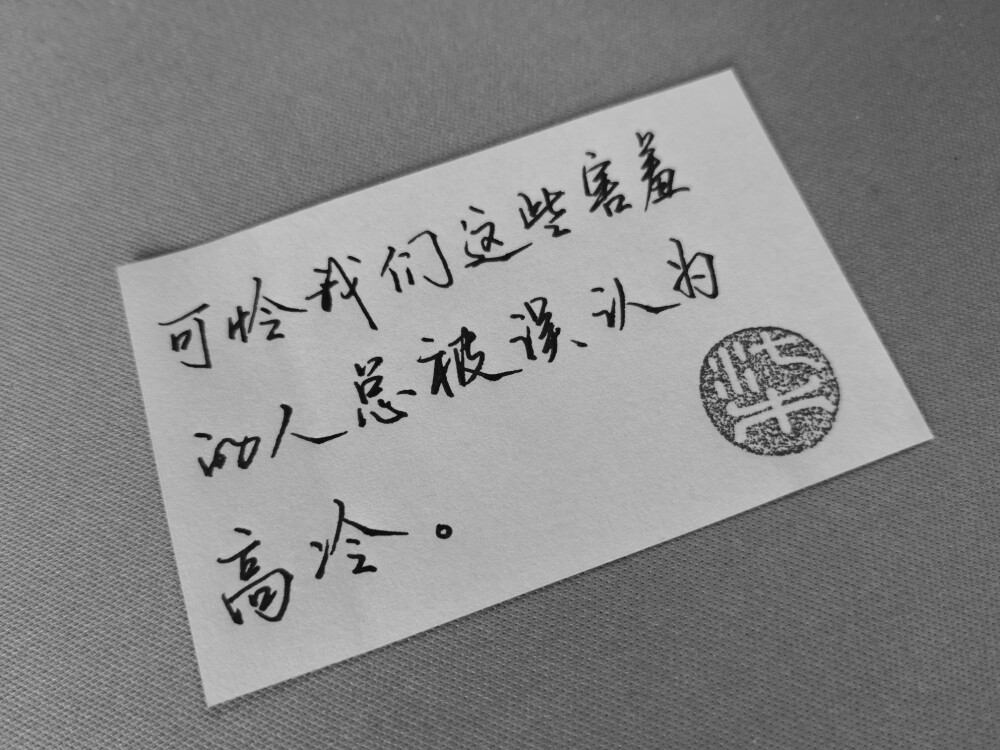 可怜我们这些害羞
的人总被误认为
高冷。